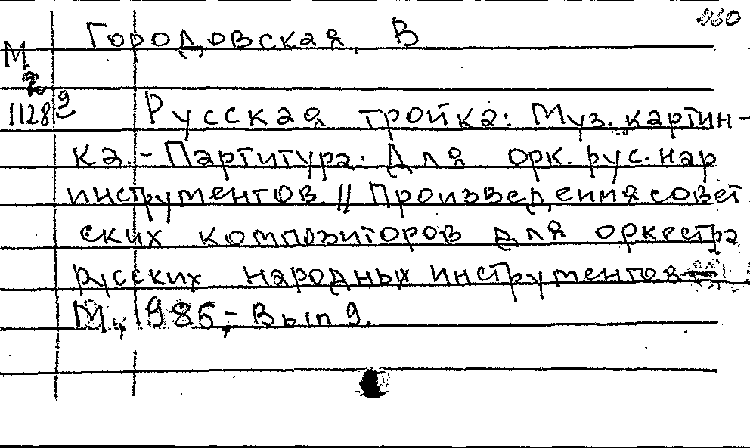 Городовская, В
М
2
11289
Русская тройка: Муз. картин-
ка. - Партитура. Для орк. рус. нар
инструментов. // Произведения совет
ских композиторов для оркестра
русских народных инструментов -
М., 1986, - Вып 9.